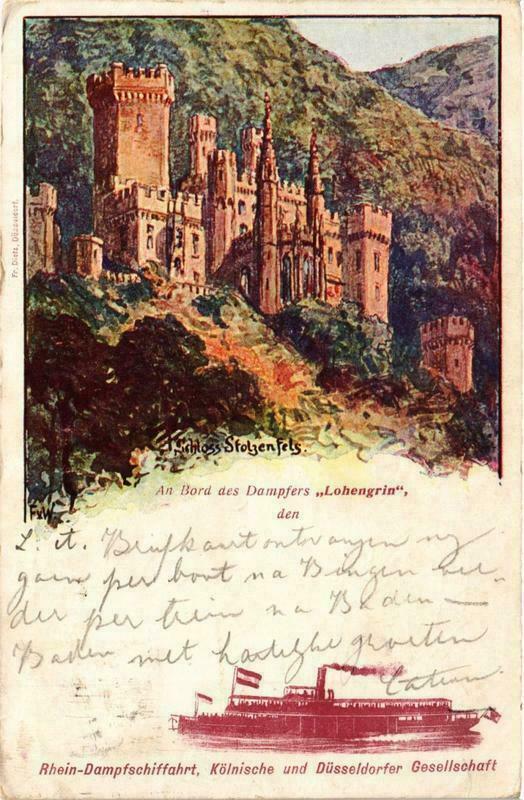 Schloss Stolzenfels.
Fr. Dietz, Düsseldorf.
F.v.W.
An Bord des Dampfers „Lohengrin“,
den
L. t. Briefkaart ontvangen wy
gaan per boot na Bingen ver-
der per trein na Baden-
Baden met hartelyke groeten
Rhein-Dampfschiffahrt, Kölnische und Düsseldorfer Gesellschaft